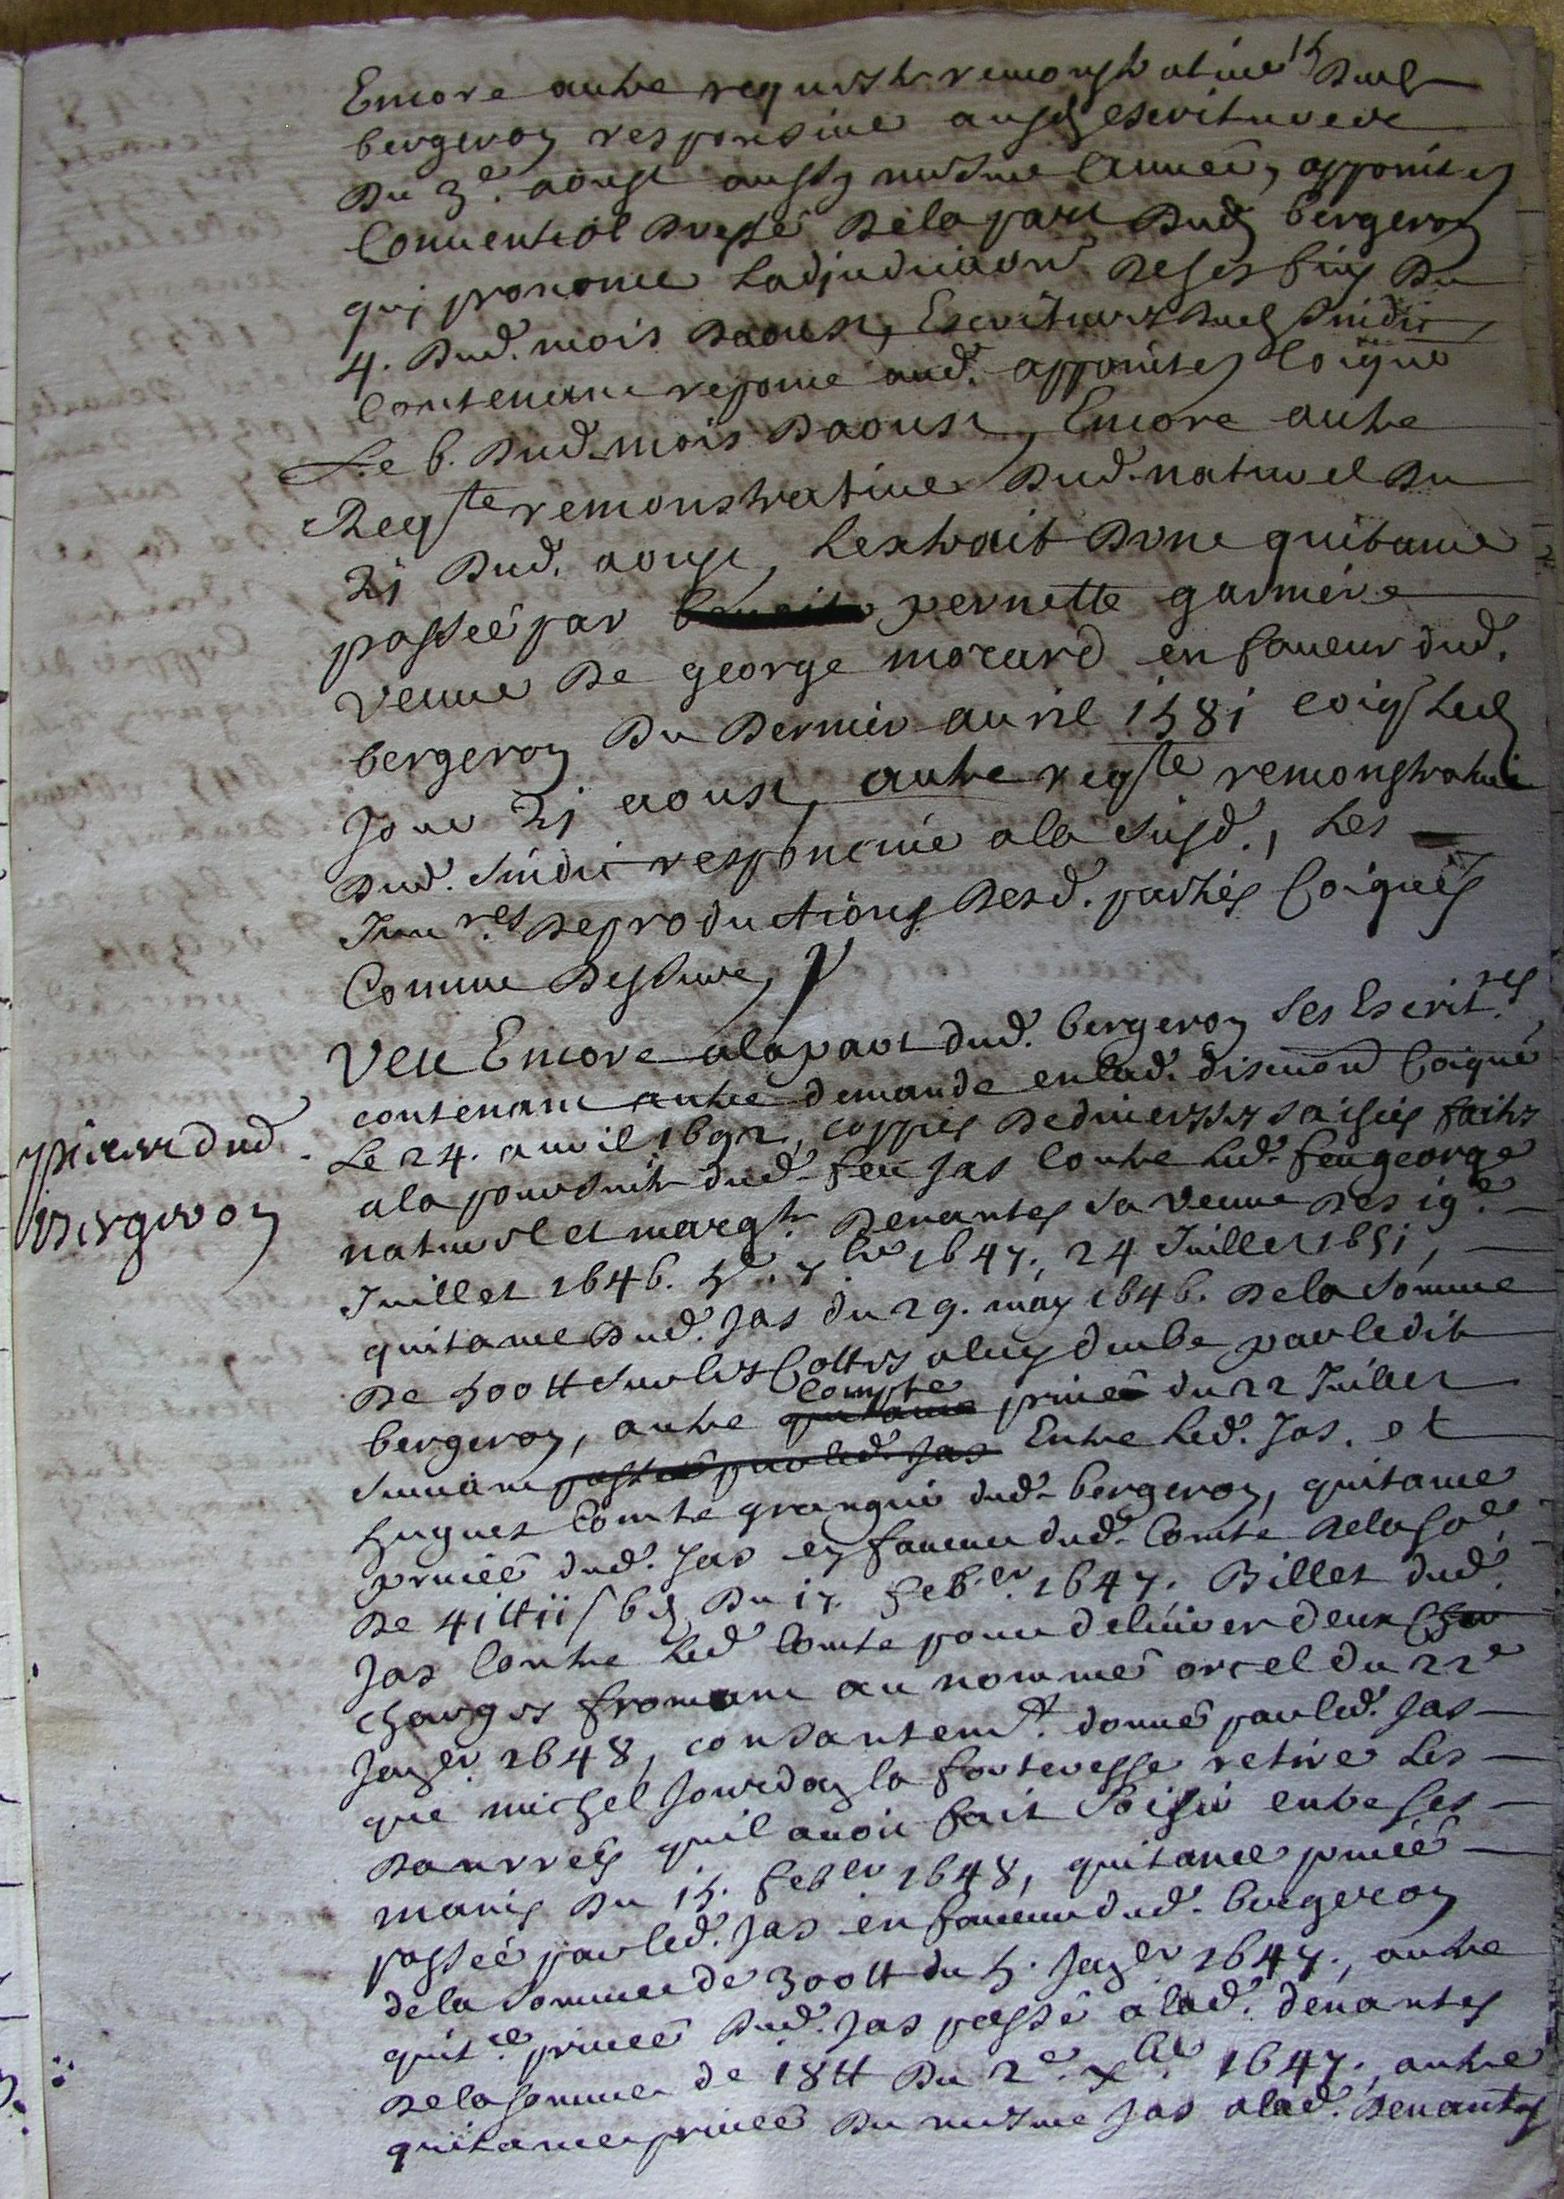 Encore autre requeste remonstrative dud
bergeron responsive ausd escritures
du 3e. aoust aussy mesme année, appointé
Conventiol dressé dela part dud bergeron
quj prononce Ladjudicaon de ses fins du
4. dud. mois daoust, Escritures dud sindic
Contenant reponse aud. appointé Coigné
Le 6. dud. mois daoust, Encore autre
Reqte remonstrative dud. naturel du
2j dud. aoust, Lextrait dune quitance
passée par pernette garniere
veuve de george morard en faveur dud.
bergeron du dernier avril 1581 coig led
Jour 2j aoust, autre reqte remonstrative
dud. sindic responcive ala susd., Les
Invres de productions desd. parties Coignés
Comme dessus,
Veu Encore alapart dud. bergeron ses Escritres
contenant autre demande enlad. discuon Coigné
Le 24. avril 1692, coppies dediverses saisies faites
ala poursuite dud. feu Jas Contre led. feu george
naturel et margte denantes sa veuve des 19e
Juillet 1646. 5e. 7bre 1647., 24 Juillet 1651,
quitance dud. Jas du 29. may 1646. dela somme
de 500 tt sur les Cottes aluy deube par ledit
bergeron, autre compte quitance privée du 22 Juillet
suivant passée par led. Jas Entre led. Jas, et
hugues Comte granger dud. bergeron, quitance
privée dud. Jas en faveur dud. Comte dela so.e
de 41 tt ii s 6 d du 17. feb.er 1647. Billet dud.
Jas Contre led Comte pour delivrer deux
charges froment au nommé orcel du 22e
Janer 1648, consantemt. donné par led. Jas
que michel Jourdan la forteresse retire les
danrrées quil avoit fait saisir entre ses
mains du 15. feber 1648, quitance privée
passée par led. Jas en faveur dud. bergeron
de la somme de 300 tt du 5. Janer 1647., autre
quitce privée dud. Jas passé a lad. denantes
dela somme de 18 tt du 2e. xbre. 1647., autre
quitance privée du mesme Jas alad. denantes
pieces dud.
bergeron